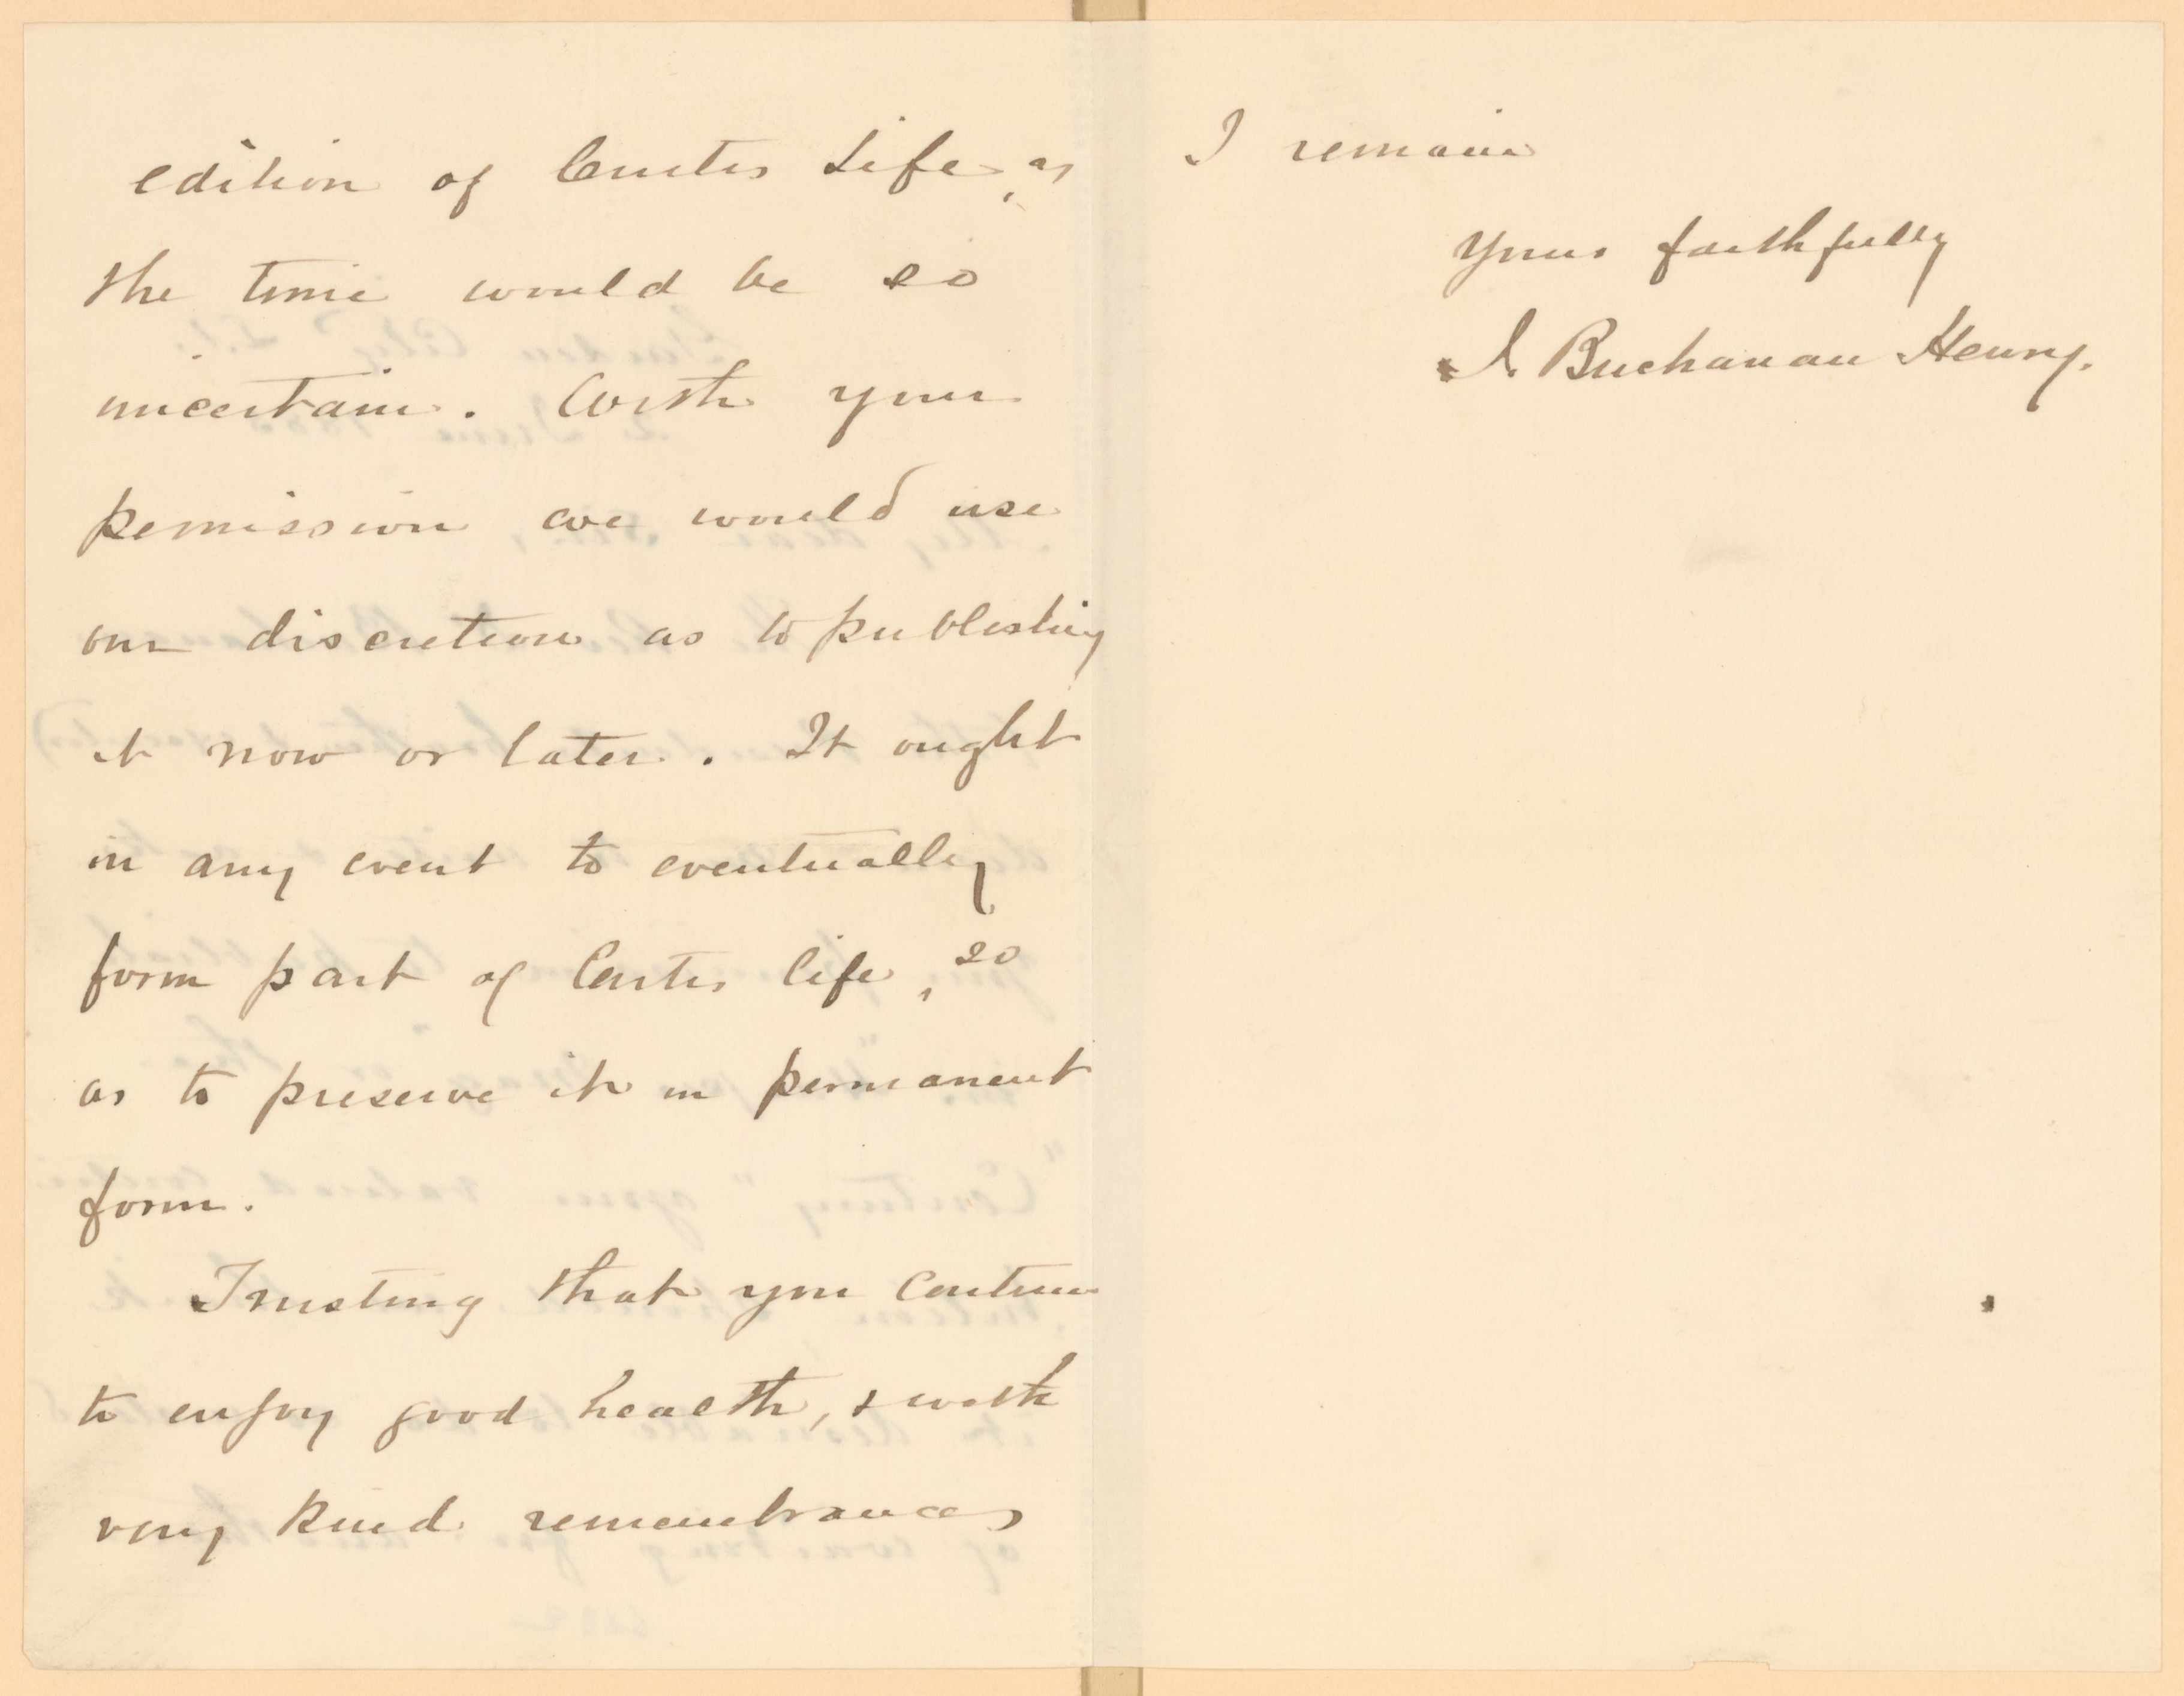 edition of Curtis Life, as
the time would be so
uncertain. With your
permission we would use
our discretion as to publishing
it now or later. It ought
in any event to eventually
form part of Curtis life, so
as to preserve it in permanent
form.
Trusting that you continue
to enjoy good health, & with
very kind remembrances
I remain
Yours faithfully
J. Buchanan Henry.